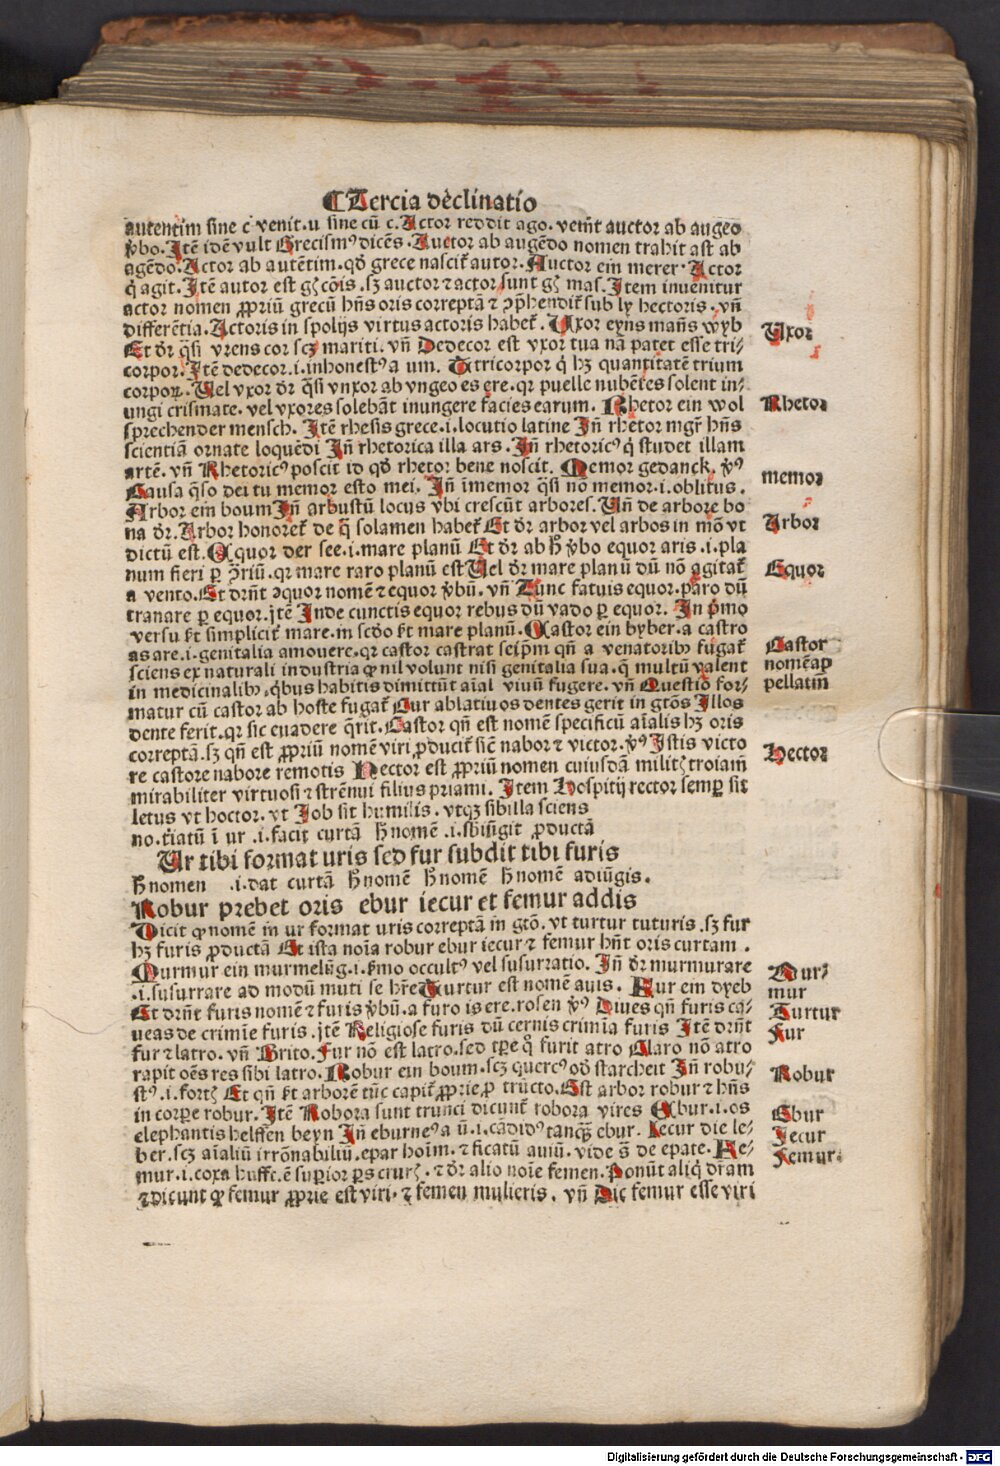 ¶Tercia declinatio
autentim sine c venit.u sine cū c. Actor reddit ago. venit auctor ab augeo
v̄bo. Itē idē vult Grecismꝰ dicēs. Auctor ab augēdo nomen trahit ast ab
agēdo. Actor ab autētim. qđ grece nascit̄ autor. Auctor ein merer. Actor
q̇ agit. Itē autor est gn̄is cōis. sꝫ auctor ⁊ actor sunt mas. Item inuenitur
actor nomen ꝓpriū grecū hn̄s oris correptā ⁊ ꝯp̄hendit̄ sub ly hectoris. vn̄
differētia. Actoris in spolijs virtus actoris habet̄. Uxor eyns mañs wyb
Et dr̄ q̄si vrens cor scꝫ mariti. vn̄ Dedecor est vxor tua nā patet esse tri⸗
corpor. Itē dedecor.i.inhonestꝰ a um. Tricorpor q̇ hꝫ quantitatē trium
corpoꝝ. Uel vxor dr̄ q̄si vnxor ab vngeo es ere. qꝛ puelle nubētes solent in⸗
ungi crismate. vel vxores solebāt inungere facies earum. Rhetor ein wol
sprechender mensch. Itē rhesis grece.i.locutio latine Jn̄ rhetor mgr̄ hn̄s
scientiā ornate loquēdi Jn̄ rhetorica illa ars. Jn̄ rhetoricꝰ q̇ studet illam
artē. vn̄ Rhetoricꝰ poscit id qđ rhetor bene noscit. Memor gedanck. v̄ꝰ
Causa q̄so dei tu memor esto mei. Jn̄ īmemor q̄si nō memor.i.oblitus.
Arbor ein boum Jn̄ arbustū locus vbi crescūt arbores. Un̄ de arbore bo
na dr̄. Arbor honoret̄ de q̄ solamen habet̄ Et dr̄ arbor vel arbos in mō vt
dictū est. Equor der see.i.mare planū Et dr̄ ab h̄ v̄bo equor aris.i.pla
num fieri ꝑ ꝯ̄riū. qꝛ mare raro planū est Uel dr̄ mare planū dū nō agitat̄
a vento. Et drn̄t equor nomē ⁊ equor v̄bū. vn̄ Tunc fatuis equor. paro dū
tranare ꝑ equor. itē Inde cunctis equor rebus dū vado ꝑ equor. In p̄mo
versu st̄ simplicit̄ mare. in scđo st̄ mare planū. Castor ein byber. a castro
as are.i.genitalia amouere. qꝛ castor castrat seip̄m qn̄ a venatoribꝰ fugat̄
sciens ex naturali industria ꝙ nil volunt nisi genitalia sua. q̄ multū valent
in medicinalibꝰ, q̇bus habitis dimittūt aīal viuū fugere. vn̄ Questio for⸗
matur cū castor ab hoste fugat̄ Cur ablatiuos dentes gerit in gtōs Illos
dente ferit. qꝛ sic euadere q̄rit. Castor qn̄ est nomē specificū aīalis hꝫ oris
correptā. sꝫ qn̄ est ꝓpriū nomē viri ꝓducit̄ sic̄ nabor ⁊ victor. v̄ꝰ Istis victo
re castore nabore remotis Hector est ꝓpriū nomen cuiusdā milit̄ troiani
mirabiliter virtuosi ⁊ strēnui filius priami. Item Hospitij rector semꝑ sit
letus vt hoctor. vt Job sit humilis. vtqꝫ sibilla sciens
no. t̄iatū ī ur .i.facit curtā h̄ nomē .i.sb̄iūgit ꝓductā
Ur tibi format uris sed fur subdit tibi furis
h̄ nomen .i.dat curtā h̄ nomē h̄ nomē h̄ nomē adiūgis.
Robur prebet oris ebur iecur et femur addis
Dicit ꝙ nomē in ur format uris correptā in gtō. vt turtur tuturis. sꝫ fur
hꝫ furis ꝓductā Et ista noīa robur ebur iecur ⁊ femur hn̄t oris curtam.
Murmur ein murmelūg.i.sermo occultꝰ vel susurratio. Jn̄ dr̄ murmurare
.i.susurrare ad modū muti se hr̄e Turtur est nomē auis. Fur ein dyeb
Et drn̄t furis nomē ⁊ furis v̄bū. a furo is ere. rosen v̄ꝰ Diues qn̄ furis ca⸗
ueas de crimīe furis. itē Religiose furis dū cernis crimīa furis Itē drn̄t
fur ⁊ latro. vn̄ Brito. Fur nō est latro. sed tp̄e qͦ furit atro Claro nō atro
rapit oēs res sibi latro. Robur ein boum. scꝫ quercꝰ od̄ starcheit Jn̄ robu⸗
stꝰ.i.fortis Et qn̄ st̄ arborē tūc capit̄ ꝓprie ꝓ trūcto. Est arbor robur ⁊ hn̄s
in corꝑe robur. Itē Robora sunt trunci dicunt̄ robora vires Ebur.i.os
elephantis helffen beyn Jn̄ eburneꝰ a ū.i.cādidꝰ tanqꝫ ebur. Iecur die le⸗
ber. scꝫ aīaliū irrōnabiliū. epar hoīm. ⁊ ficatū auiū. vide s̄ de epate. Fe⸗
mur.i.coxa hufft. ē suꝑior ꝑs cruris. ⁊ dr̄ alio noīe femen. Ponūt aliq̇ dr̄am
⁊ dicunt ꝙ femur ꝓprie est viri. ⁊ femen mulieris. vn̄ Dic femur esse viri
Uxor
Rhetor
memor
Arbor
Equor
Castor
nomē ap
pellatiū
Hector
Mur⸗
mur
Turtur
Fur
Robur
Ebur
Iecur
Femur.
Digitalisierung gefördert durch die Deutsche Forschungsgemeinschaft - DFG